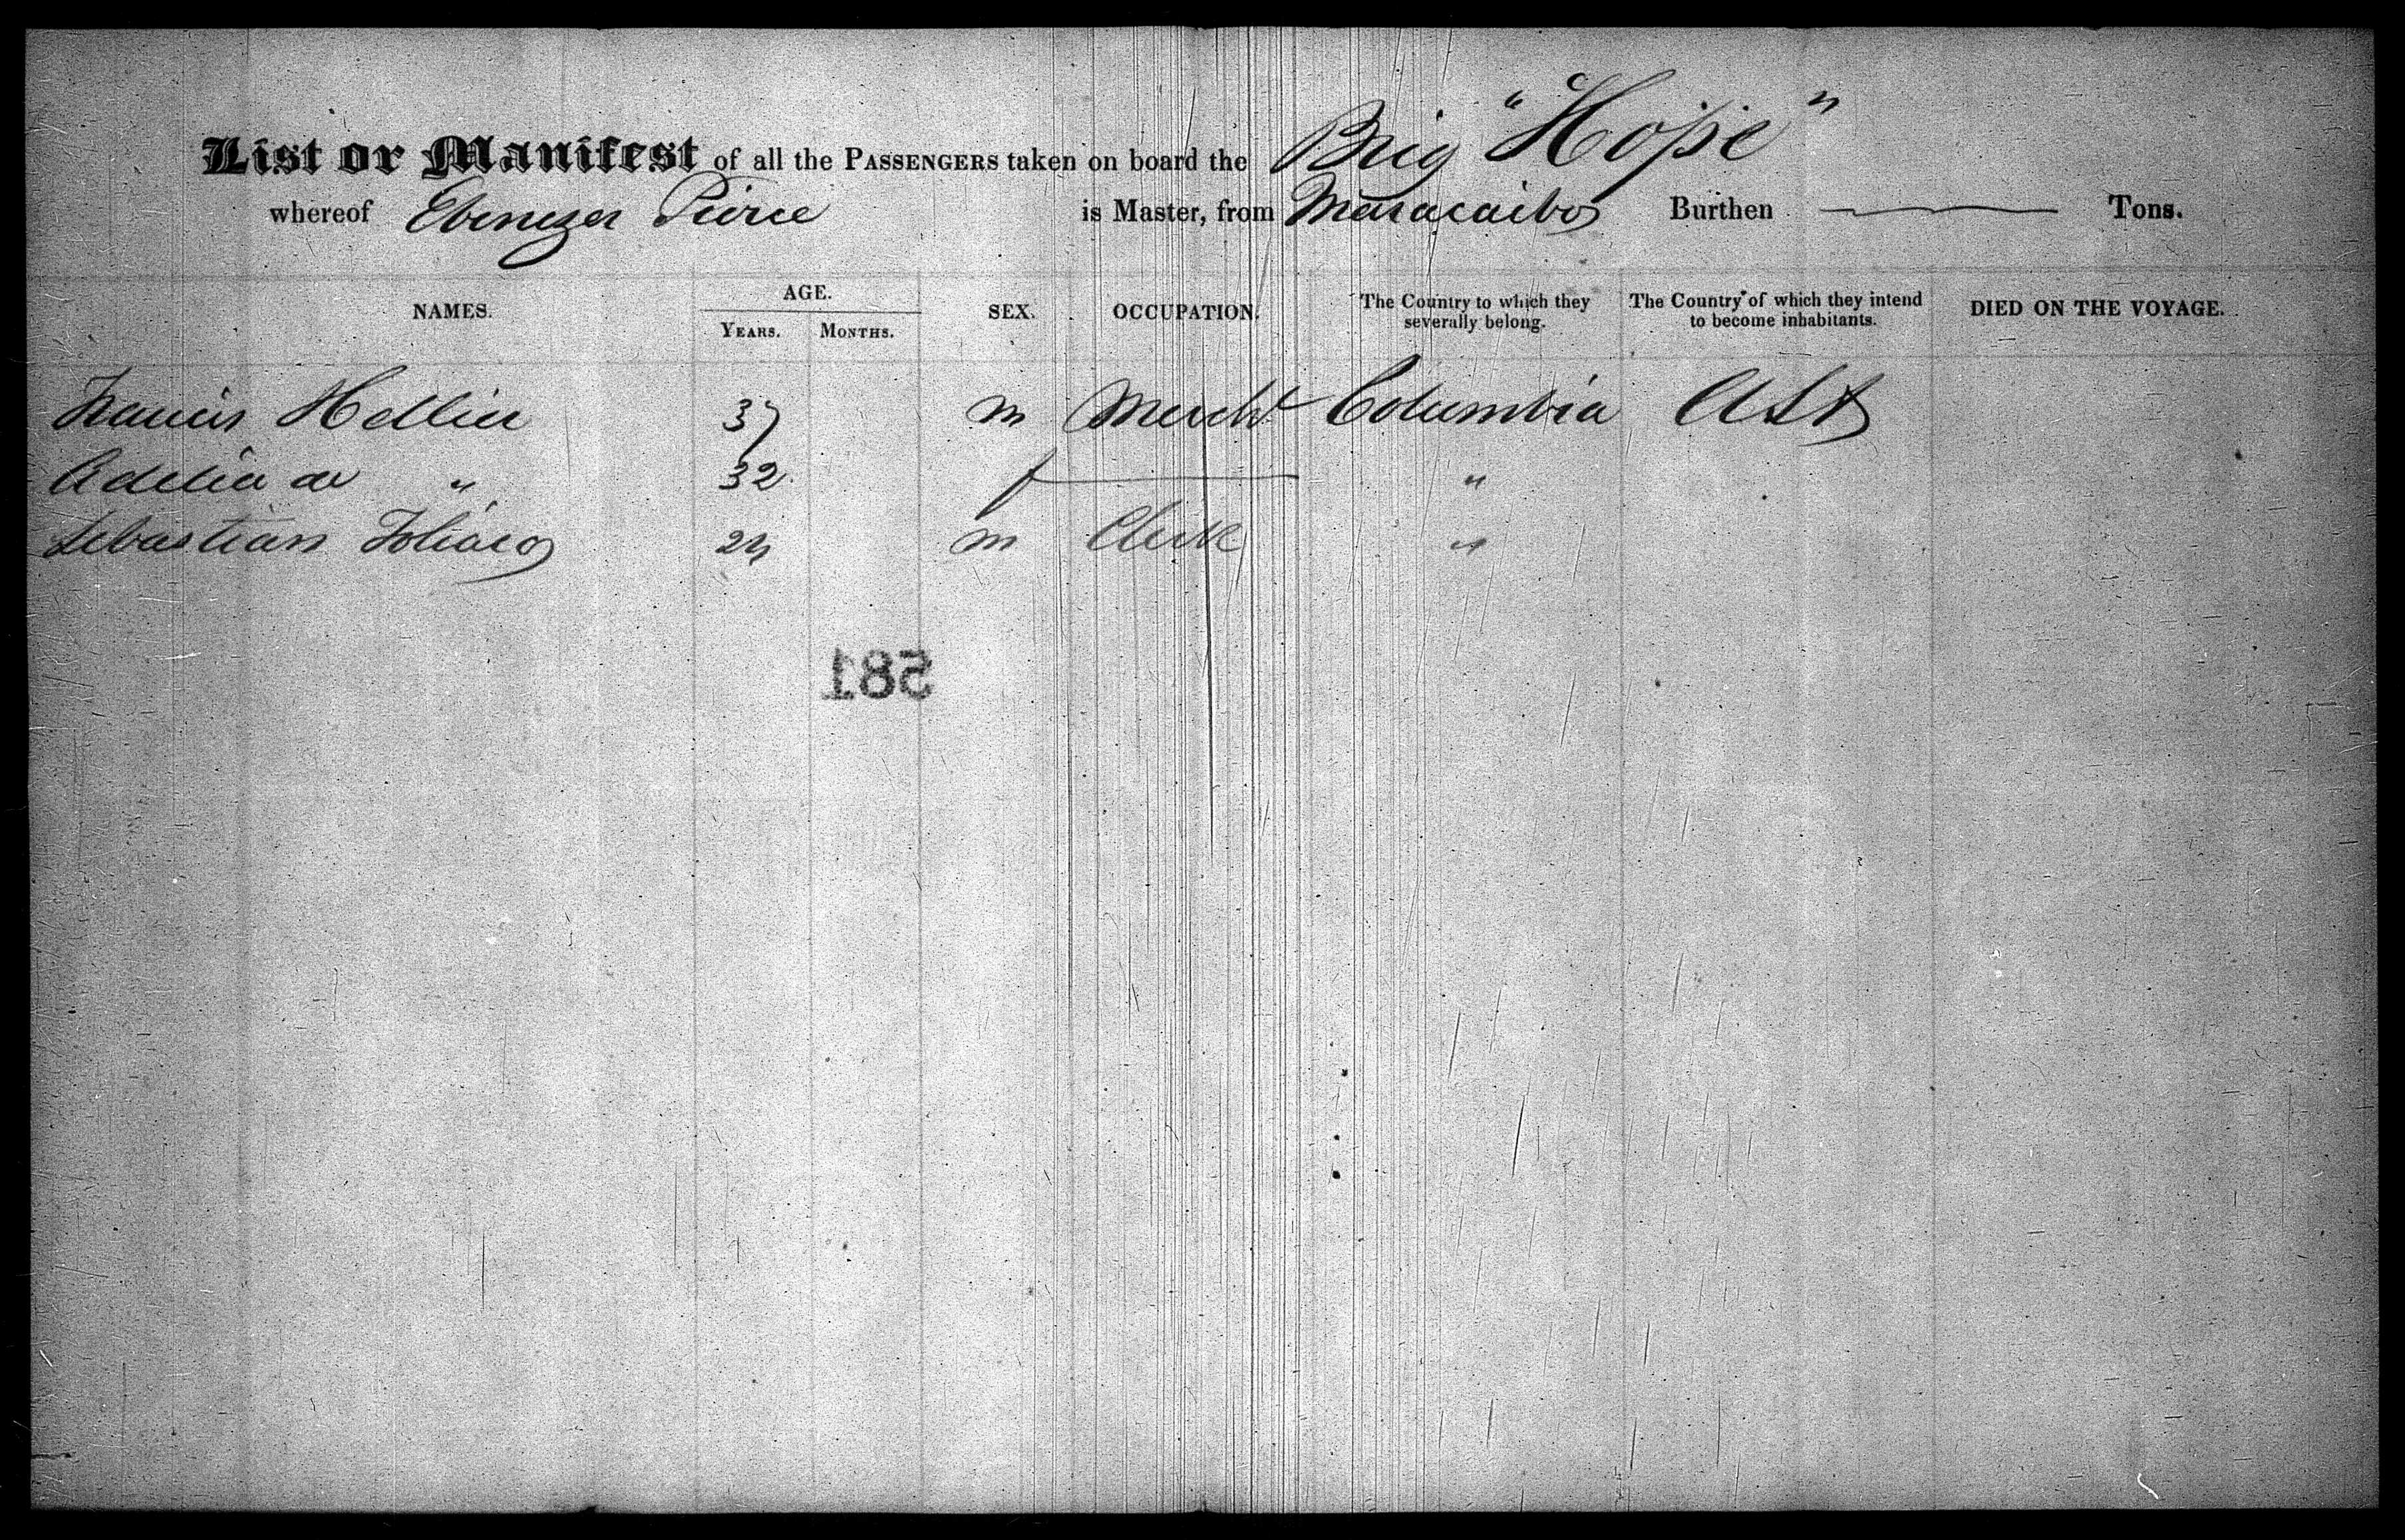 List or Manifest of all the PASSENGERS taken on board the Brig "Hope"
whereof Ebenezer Pierce is Master, from Maracaibo Burthen Tons.
NAMES. AGE. SEX. OCCUPATION. The Country to which they severally belong. The Country of which they intend to become inhabitants. DIED ON THE VOYAGE.
YEARS. MONTHS.
Francis 37 m Mercht Columbia
Adelia de " 32 f "
Sebastian 24 m Clerk "
581